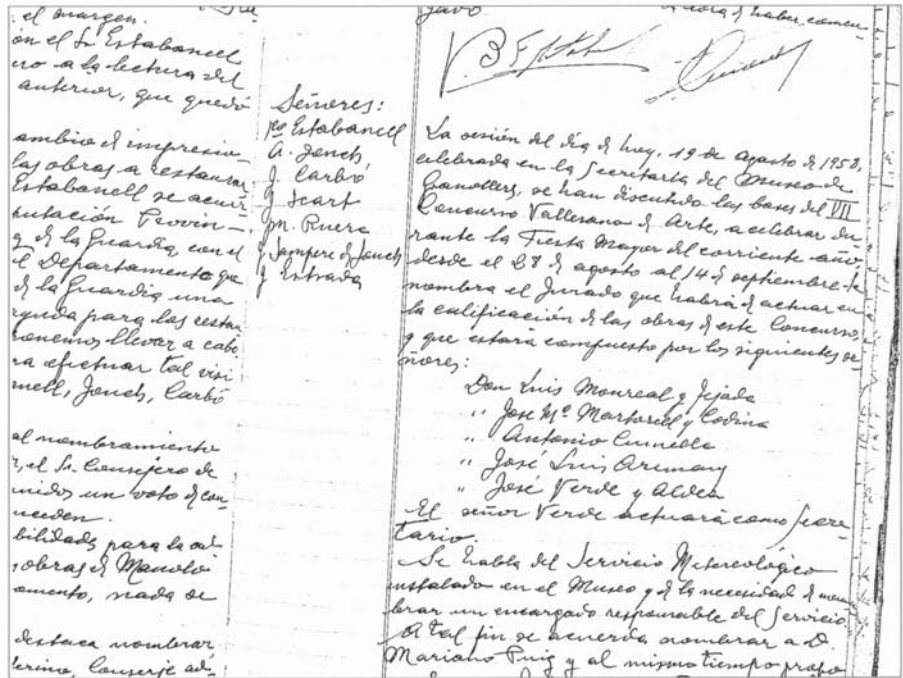 el margen.
on el Sr. Estabanell
a la lectura del
anterior, que quedó
ambio de impresio-
las obras a restaurar,
Estabanell se acuer-
putación Provin-
de la Guardia, con el
el Departamento que
de la Guardia una
para las restau
llevar a cabo
ra efectuar tal visi
nell, Jonch, Carbó
al nombramiento
el Sr. Consejero de
un voto de con
bilidad para la ad
obras de Manolo
nada de
destaca nombrar
Conserje ad-
Señores:
Estabanell
A. Jonch
J. Carbó
J. Icart
Riera
J. Sampere de Jonch
J. Estrada
hora de haber comen-
V. B.
La sesión del día de hoy, 19 de agosto de 1958,
celebrada en la Secretaría del Museo de
Granollers, se han discutido las bases del VII
Concurso Vallesano de Arte, a celebrar du
rante la Fiesta Mayor del corriente año
desde el 28 de agosto al 14 de septiembre. Se
nombra el Jurado que habrá de actuar en
la calificación de las obras de este Concurso,
y que estará compuesto por los siguientes se
ñores:
Don Luis Monreal y Tejada
" José Mª. Martorell y Codina
" Antonio Cumella
" José Luis Arimany
" José Verde y Aldea
El señor Verde actuará como Secre
tario.
Se habla del Servicio Meteorológico
instalado en el Museo y de la necesidad de nom
brar un encargado responsable del Servicio.
A tal fin se acuerda nombrar a D.
Mariano Puig y al mismo tiempo propo